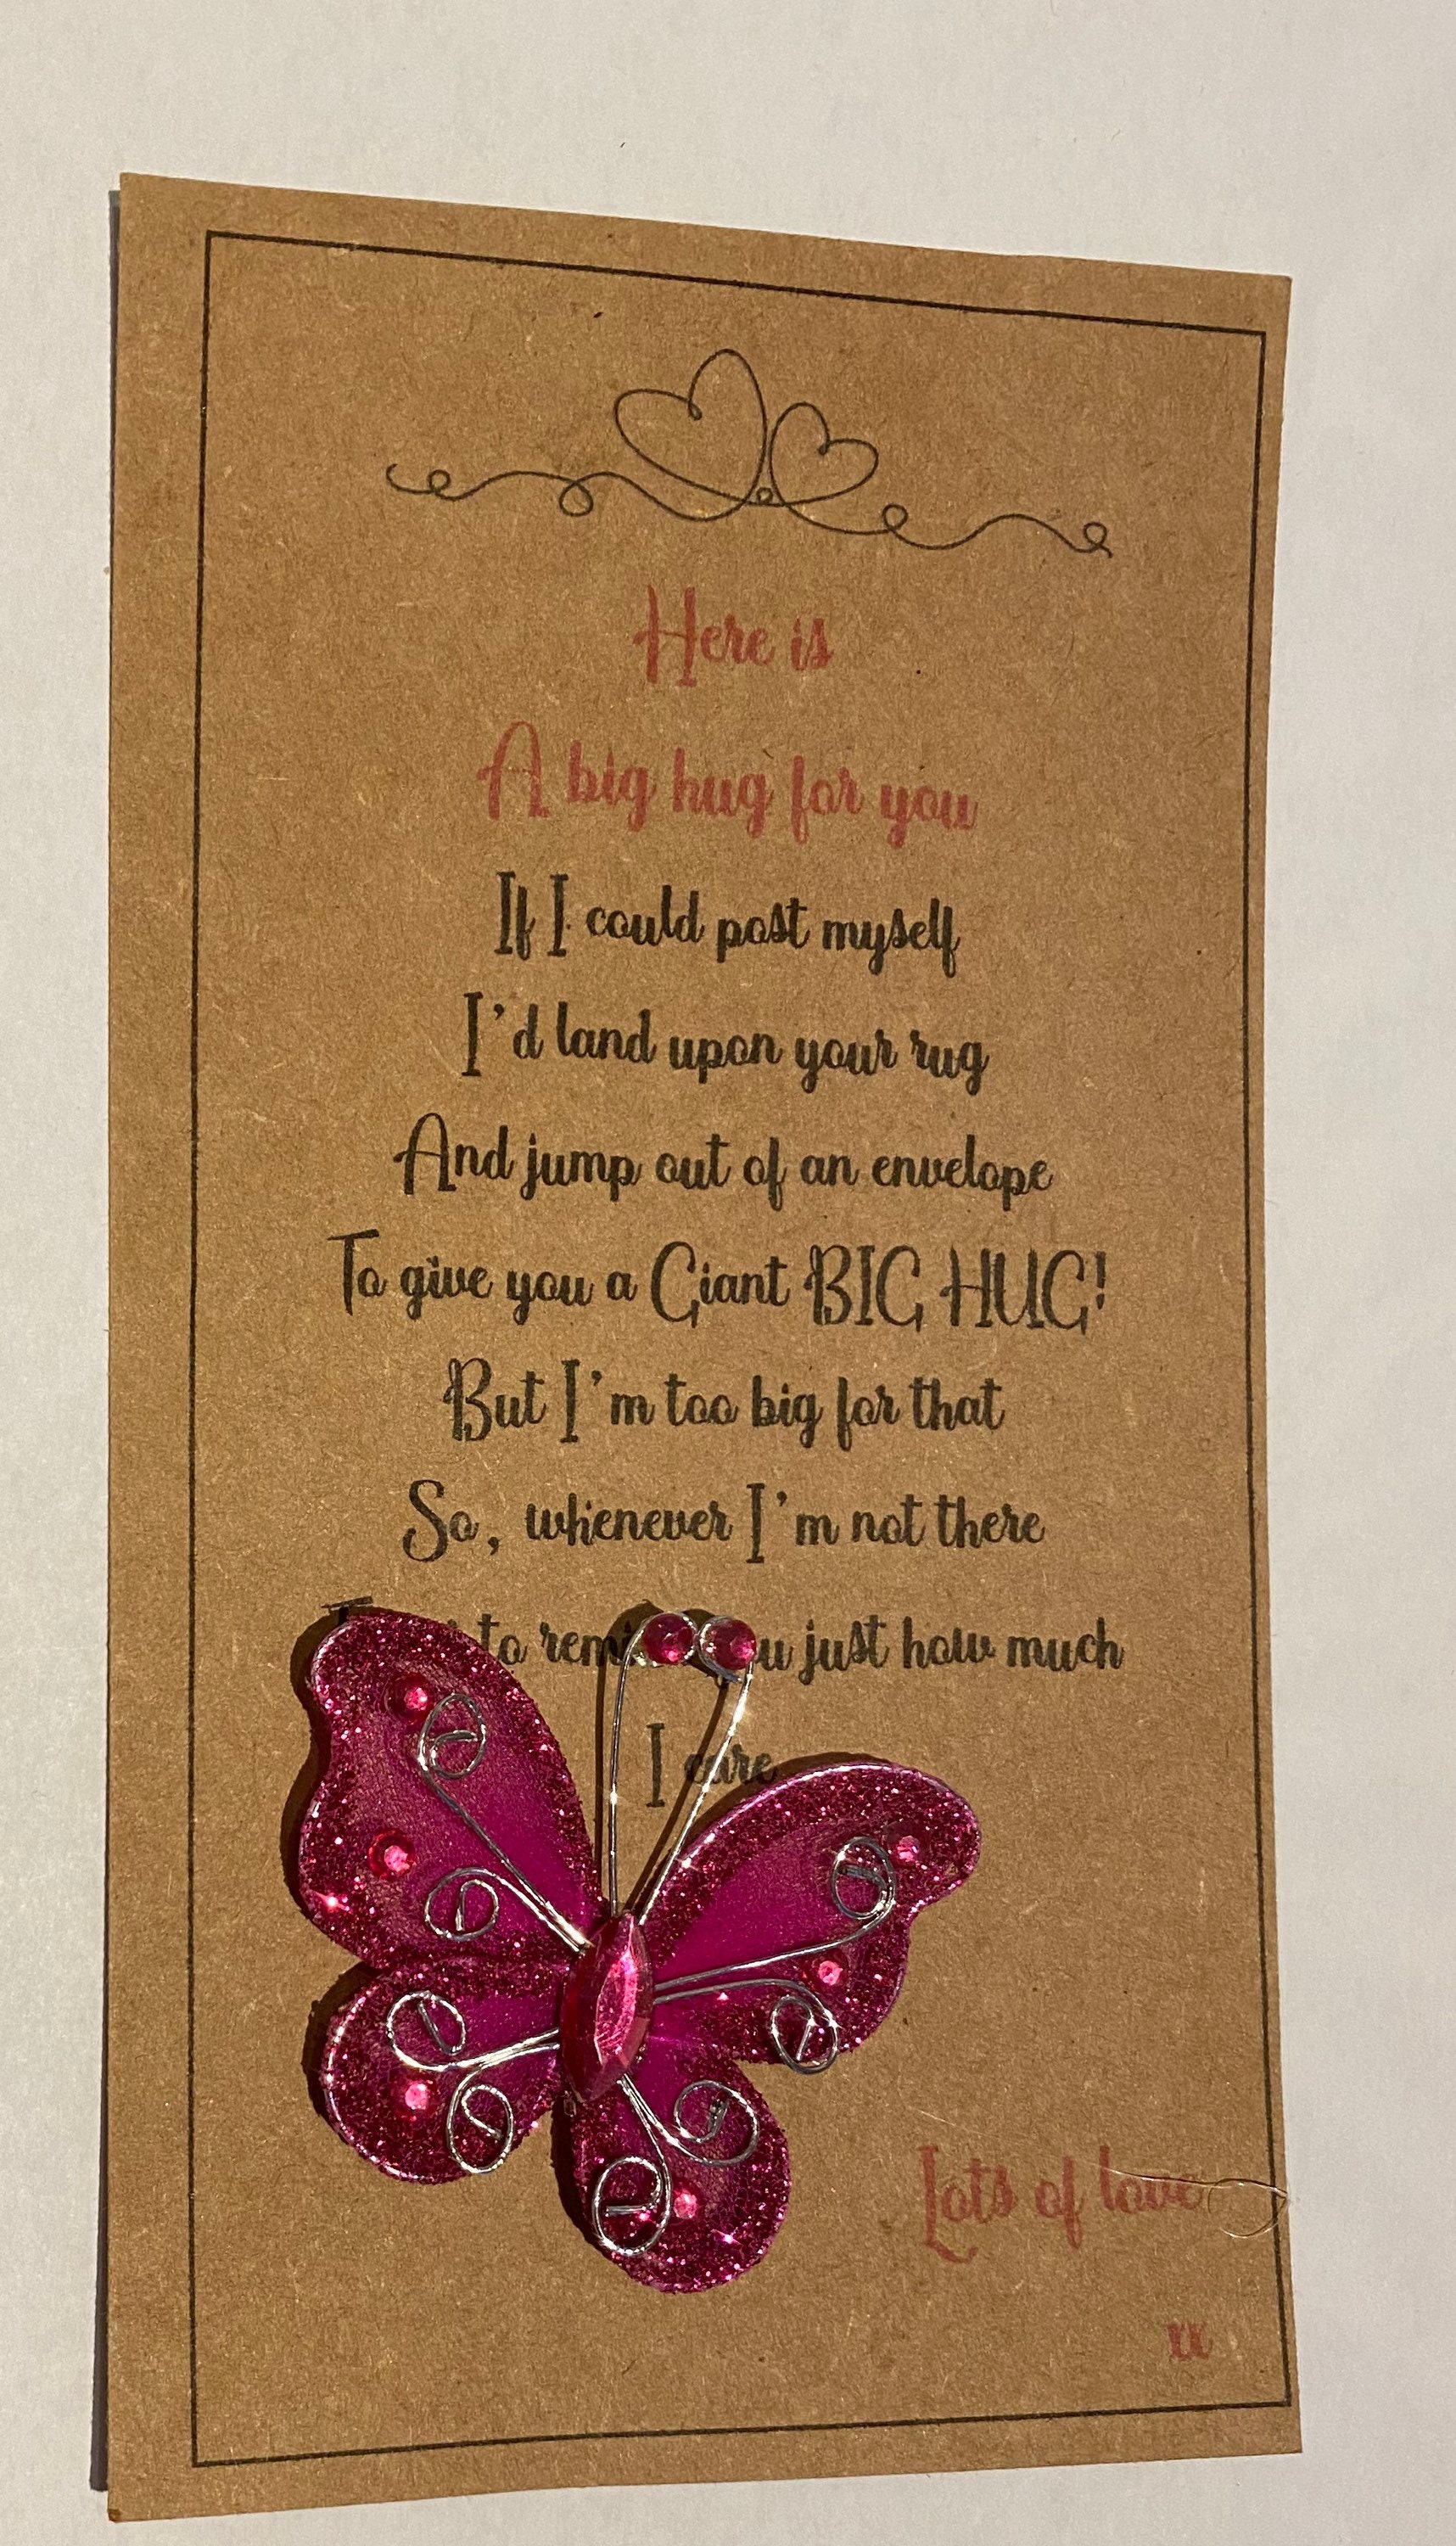 Here is
A big hug for you
If I could post myself
I'd land upon your rug
And jump out of an envelope
To give you a Giant BIG HUG!
But I'm too big for that
So, whenever I'm not there
to remind you just how much
I care
Lots of love
xx